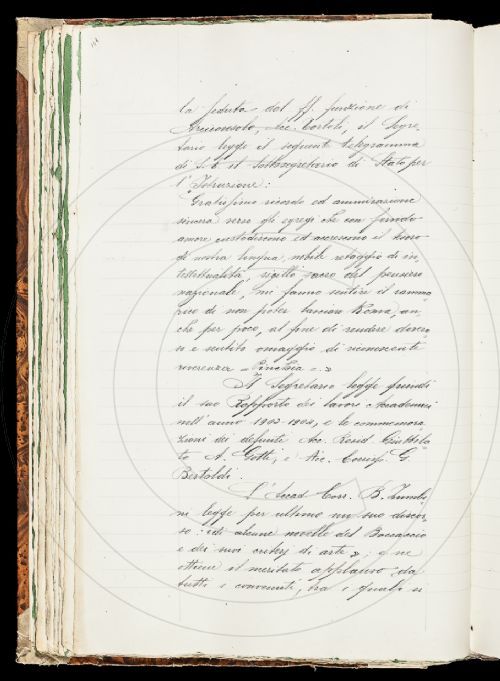 la seduta dal ff. funzione di
Arciconsolo, Acc. Tortoli, il Segre-
tario legge il seguente telegramma
di S. E. il Sottosegretario di Stato per
l'Istruzione:
"Gratissimo ricordo ed ammirazione
sincera verso gli egregi che con fervido
amore custodiscono ed accrescono il tesoro
di nostra lingua, nobile retaggio di in-
tellettualità, sigillo sacro del pensiero
nazionale, mi fanno sentire il ramma-
rico di non poter lasciare Roma, an-
che per poco, al fine di rendere dovero-
so e sentito omaggio di riconoscente
reverenza = Pinchia = "
Il Segretario legge quindi
il suo Rapporto dei lavori Accademici
nell'anno 1903-1904, e le commemora-
zioni dei defunti Acc. Resid.
A. Gotti, e Acc. Corrisp. G.
Bertoldi.
L'Accad. Corr. B. Zumbi-
ni legge per ultimo un suo discor-
so: "Di alcune novelle del Boccaccio
e dei suoi criterj di arte"; e ne
ottiene il meritato applauso da
tutti i convenuti, tra i quali si